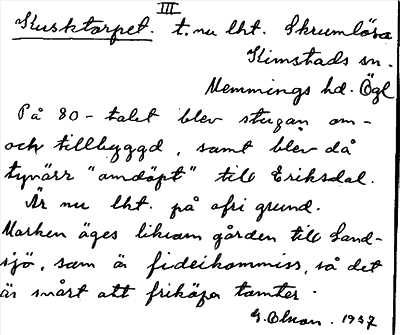 III
Kusktorpet. t. nu lht. Skrumlösa
Kimstads sn.
Memmings hd. Ögl
På 80-talet blev stugan om-
och tillbyggd, samt blev då
tyvärr "omdöpt" till Eriksdal.
Är nu lht. på ofri grund.
Marken äges liksom gården till Land-
sjö, som är fideikommiss, så det
är svårt att friköpa tomter.
G. Olson. 1937